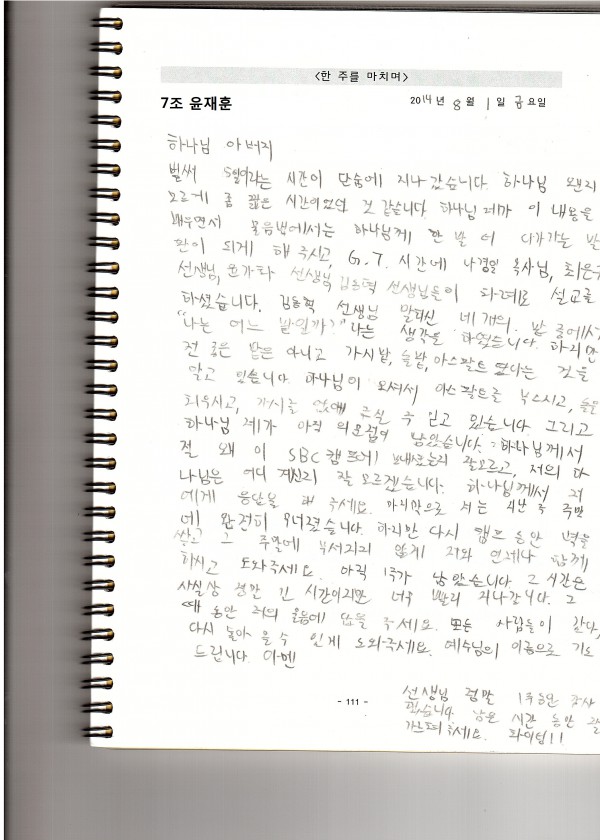 <한 주를 마치며>
7조 윤재훈 2014년 8월 1일 금요일
하나님 아버지
벌써 5일이라는 시간이 단숨에 지나갔습니다. 하나님 왠지
모르게 좀 짧은 시간이었던 것 같습니다. 하나님 제가 이 내용을
배우면서 물음법에서는 하나님께 한 발 더 다가가는 발
판이 되게 해주시고, G.7. 시간에 나경일 목사님, 최은
선생님, 선생님 김동혁 선생님들이 차례로 설교를
하셨습니다. 김동혁 선생님 말하신 네개의 밭 중에서
"나는 어느 밭일까?" 나는 생각을 하였습니다. 하지만
전 좋은 밭은 아니고 가시밭, 돌밭, 아스팔트 밭이다는 것을
알고 있습니다. 하나님이 오셔서 아스팔트를 부스시고, 돌을
치우시고, 가시를 없애 주실 줄 믿고 있습니다. 그리고
하나님 제가 아직 의문점이 남았습니다. 하나님께서
절 왜 이 SBC캠프에 보내셨는지 잘모르고, 저의 하
나님은 어디 계신지 잘 모르겠습니다. 하나님께서 저
에게 응답을 해 주세요. 마지막으로 저는 4난 주 주말
에 완전히 무너졌습니다. 하지만 다시 캠프 동안 벽을
쌓고 그 주말에 부서지지 않게 저와 언제나 함께
하시고 도와주세요. 아직 1주가 남았습니다. 그 시간은
사실상 정말 긴 시간이지만 너무 빨리 지나갑니다. 그
때 동안 저의 물음에 답을 주세요. 모든 사람들이 같다,
다시 돌아 올 수 있게 도와주세요. 예수님의 이름으로 기도
드립니다. 아멘
- 111 -
선생님 정말 1주동안 감사
했습니다. 남은 시간 동안 잘
가르쳐주세요. 화이팅!!